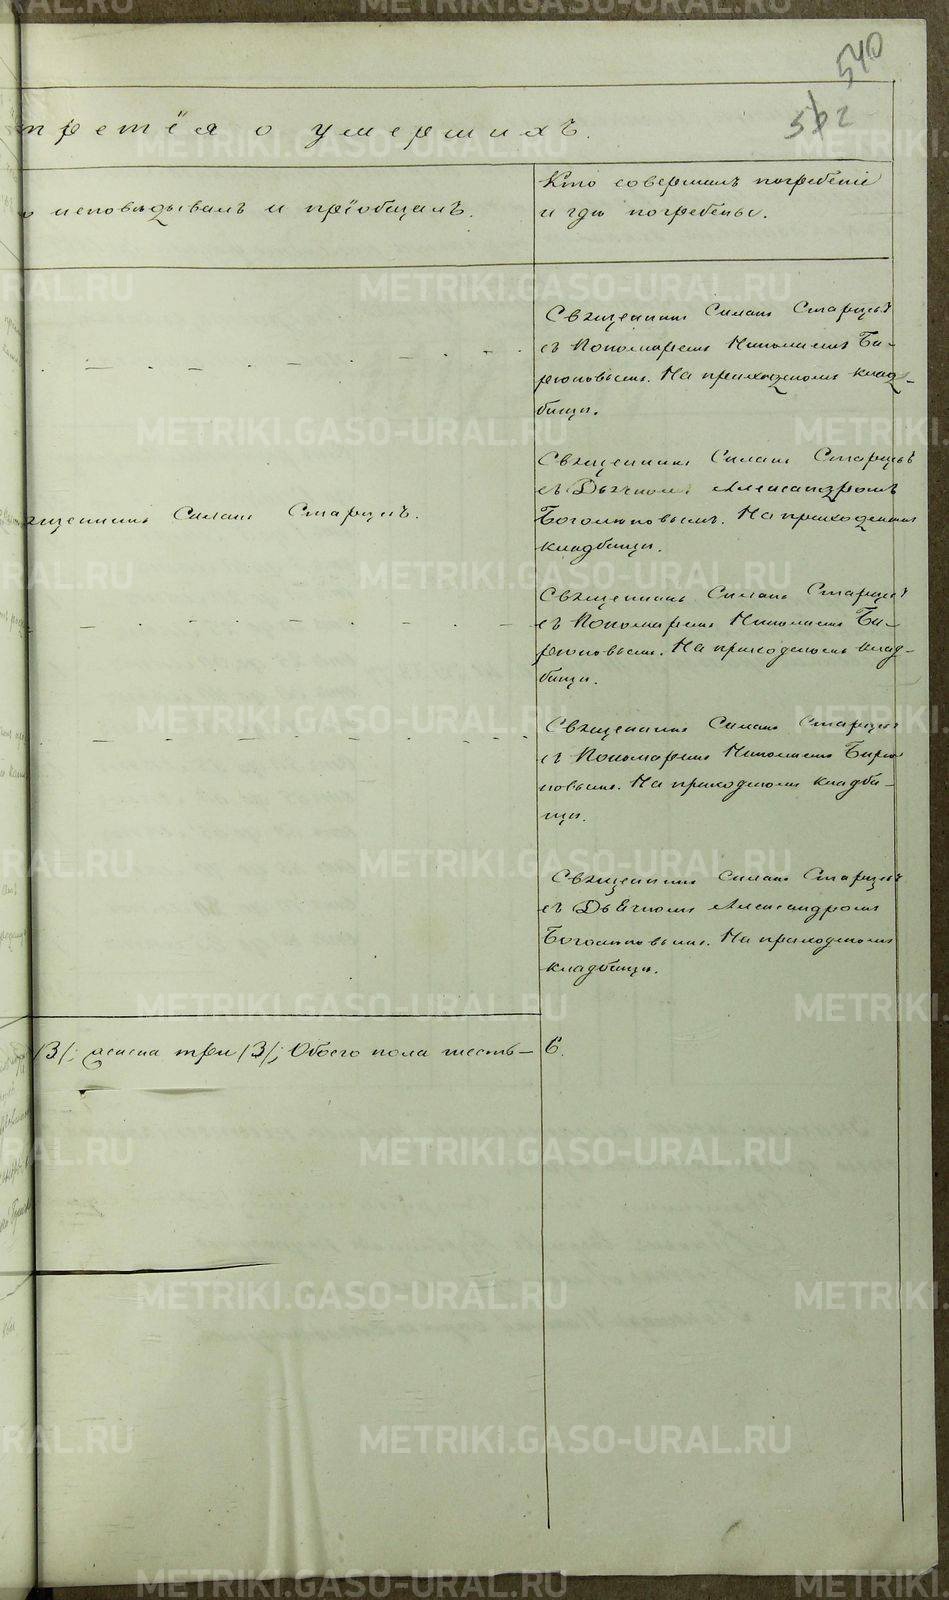 540
502
третёя о умершихъ.
исповѣдывалъ и прїобщалъ.
Кто совершалъ погребенїе
и гдѣ погребены.
Священникъ Силанъ Старцевъ
съ Пономаремъ Николаемъ Би-
рюковымъ. На приходскомъ клад-
бищѣ.
Священникъ Силанъ Старцевъ
съ Дьячкомъ Александромъ
Боголюповымъ. На приходскомъ
кладбищѣ.
священникъ Силанъ Старцевъ.
Священникъ Силанъ Старцевъ
съ Пономаремъ Николаемъ Би-
рюковымъ. На приходскомъ клад-
бищѣ.
Священникъ Силанъ Старцевъ
съ Пономаремъ Николаемъ Бирю
ковымъ. На приходскомъ кладби-
щѣ.
Священникъ Силанъ Старцевъ
съ Дьячкомъ Александромъ
Боголюповымъ. На приходскомъ
кладбищѣ.
/3/; женска три /3/; Обоего пола шесть— 6.
METRIKI.GASO-URAL.RU